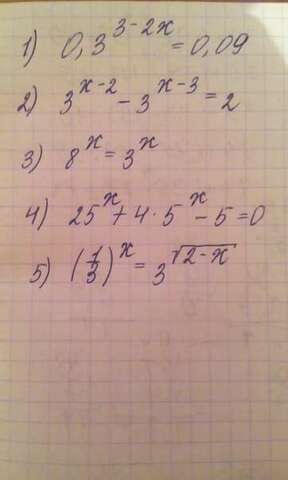 1) 0,3^{3-2x} = 0,09
2) 3^{x-2} - 3^{x-3} = 2
3) 8^x = 3^x
4) 25^x + 4 · 5^x - 5 = 0
5) (1/3)^x = 3^{√(2-x)}